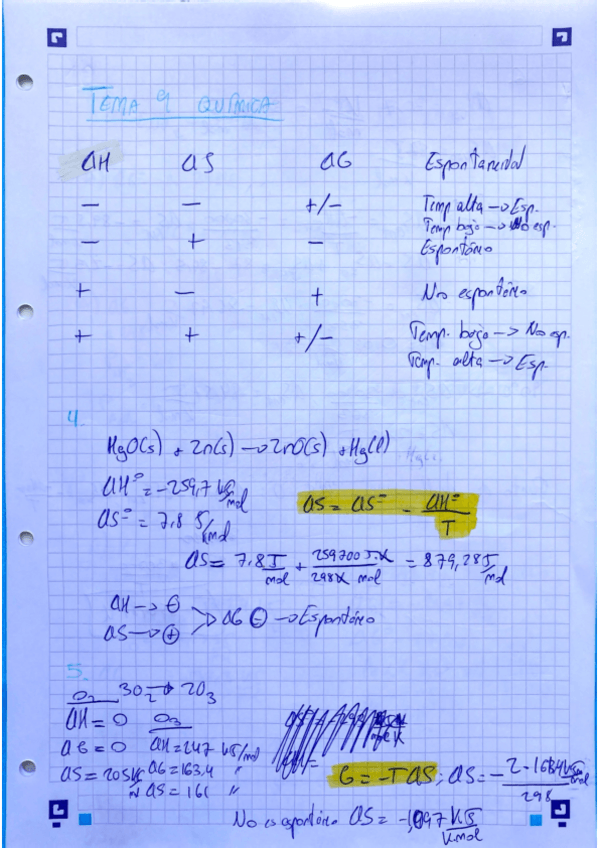 TEMA 9 QUÍMICA
ΔH ΔS ΔG Espontaneidad
- - +/- Temp alta → Esp.
Temp bajo → No esp.
- + - Espontáneo
+ - + No espontáneo
+ + +/- Temp. bajo → No esp.
Temp. alta → Esp.
4.
HgO(s) + Zn(s) → ZnO(s) + Hg(l)
ΔHº = -259,7 kJ/mol
ΔSº = 7,8 J/Kmol
ΔS = ΔSº - ΔHº/T
ΔS = 7,8 J/mol + 259700 J·K/298K mol = 879,28 J/mol
ΔH → ⊖
ΔS → ⊕ > ΔG ⊖ → Espontáneo
5.
O₂ 3O₂ → 2O₃
ΔH = 0 O₃
ΔG = 0 ΔH = 247 kJ/mol
ΔS = 205 ΔG = 163,4 "
ΔS = 161 "
G = -TΔS; ΔS = - 2·163,4 /298
No es espontáneo ΔS = -1,097 KJ/K·mol